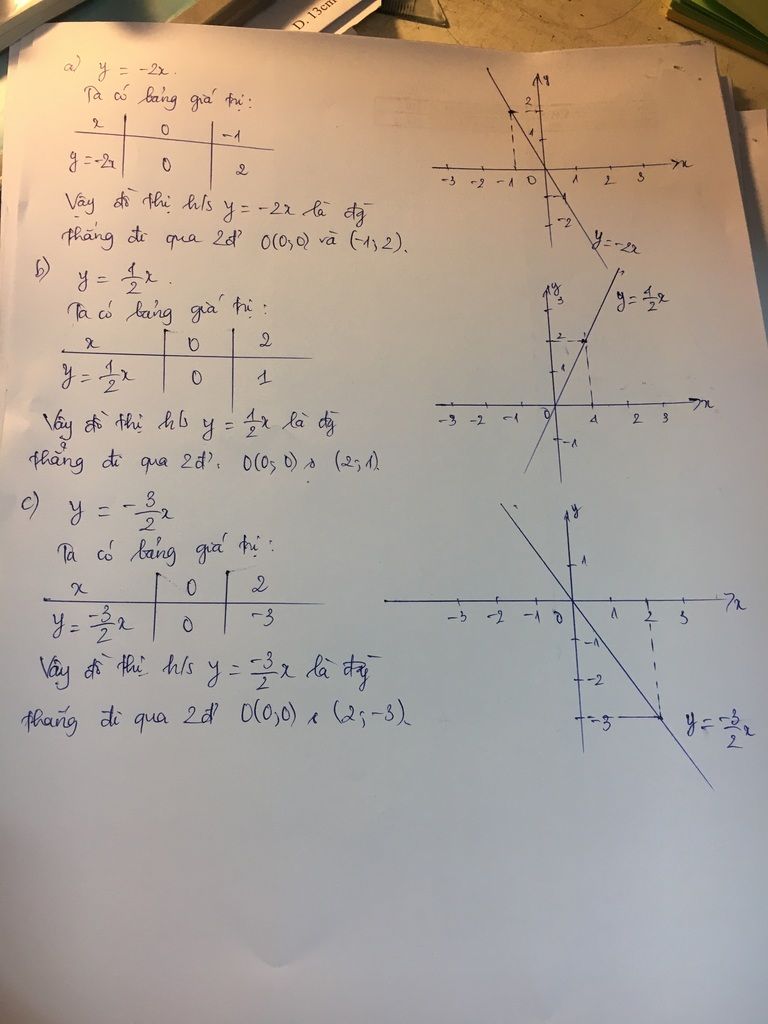 D. 13cm
a) y = -2x.
Ta có bảng giá trị:
x 0 -1
y = -2x 0 2
Vậy đồ thị h/s y = -2x là đg̀
thẳng đi qua 2đ' O(0;0) và (-1; 2).
y
2
1
-3 -2 -1 0 1 2 3 x
-1
-2
y = -2x
b) y = 1/2 x.
Ta có bảng giá trị:
x 0 2
y = 1/2 x 0 1
Vậy đồ thị h/s y = 1/2 x là đg̀
thẳng đi qua 2đ'. O(0; 0) & (2; 1).
y
3
y = 1/2 x
2
1
-3 -2 -1 0 1 2 3 x
-1
c) y = -3/2 x
Ta có bảng giá trị:
x 0 2
y = -3/2 x 0 -3
Vậy đồ thị h/s y = -3/2 x là đg̀
thẳng đi qua 2đ' O(0;0) & (2; -3).
y
1
-3 -2 -1 0 1 2 3 x
-1
-2
-3
y = -3/2 x